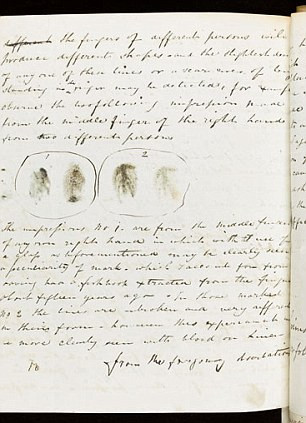 the fingers of different persons will
produce different shapes and the slightest dent
of any one of these lines or a scar even of long
standing may be detected, for
observe the following impression made
from the middle finger of the right hands
from two different persons
1 2
The impressions No 1. are from the middle finger
of my own right hand in which with the use of
a glass as beforementioned may be clearly seen
a peculiarity of mark, which I account for from
having had a fishhook extracted from the finger
about fifteen years ago. In those marked
No 2 the lines are unbroken and very different
in their form. however this experiment
is more clearly seen with blood on linen
from the foregoing